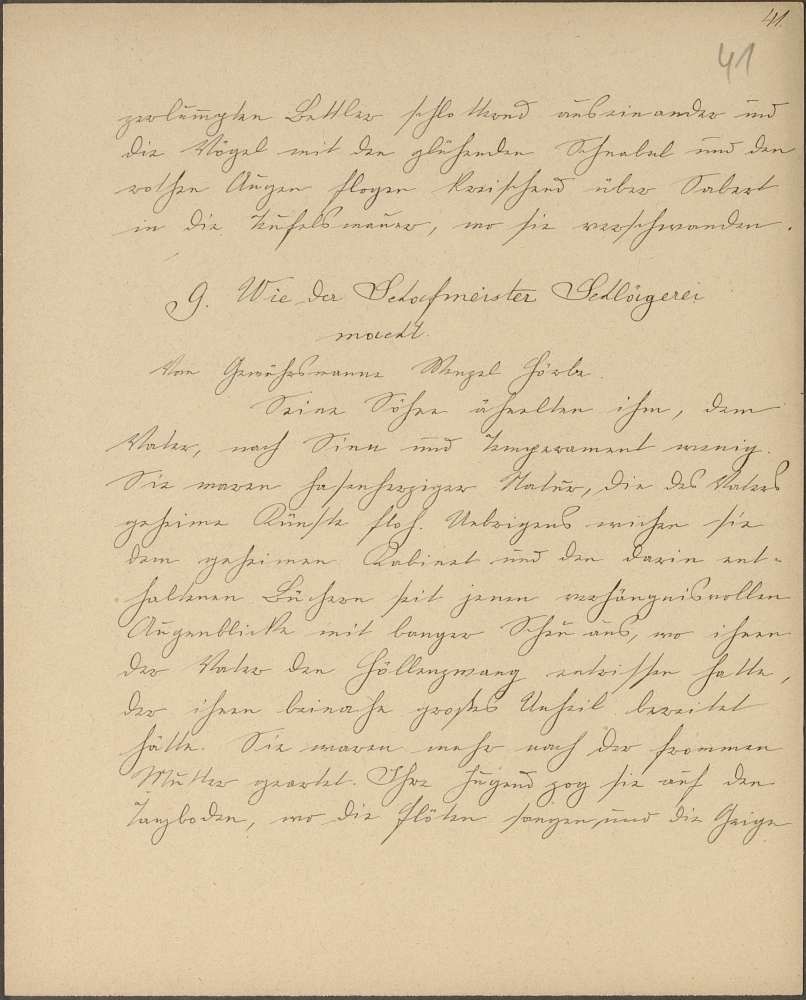 41.
41
zerlumpten Bettler schlotternd auseinander und
die Vögel mit den glühenden Schnabel und den
rothen Augen flogen kreischend über Sabert
in die Teufelsmauer, wo sie verschwanden.
9. Wie der Schafmeister Schlägerei
macht.
Von Gewährsmanne Wenzel Hörbe.
Seine Söhne ähnelten ihm, dem
Vater, nach Sinn und Temperament wenig.
Sie waren hasenherziger Natur, die des Vaters
geheime Künste floh. Uebrigens wichen sie
dem geheimen Kabinet und den darin ent-
haltenen Büchern seit jenen verhängnisvollen
Augenblicke mit banger Scheu aus, wo ihnen
der Vater den Höllenzwang entrissen hatte,
der ihnen beinahe großes Unheil bereitet
hätte. Sie waren mehr nach der frommen
Mutter geartet. Ihre Jugend zog sie auf den
Tanzboden, wo die Flöten sangen, und die Geige